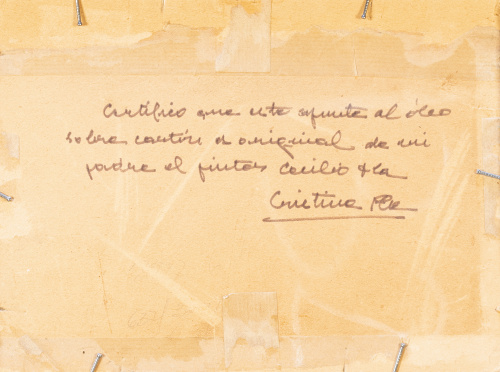 Certifico que este apunte al óleo
sobre cartón es original de mi
padre el pintor Cecilio Pla
Cristina Pla